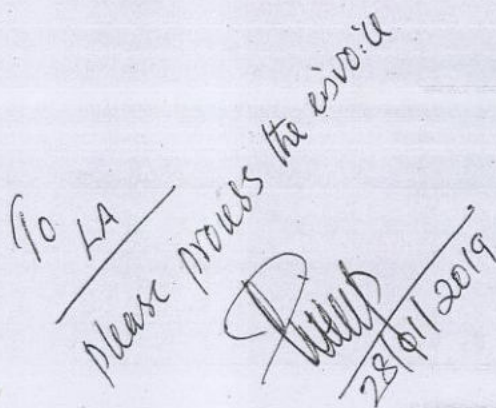 To LA
please process the invoice
28/01/2019